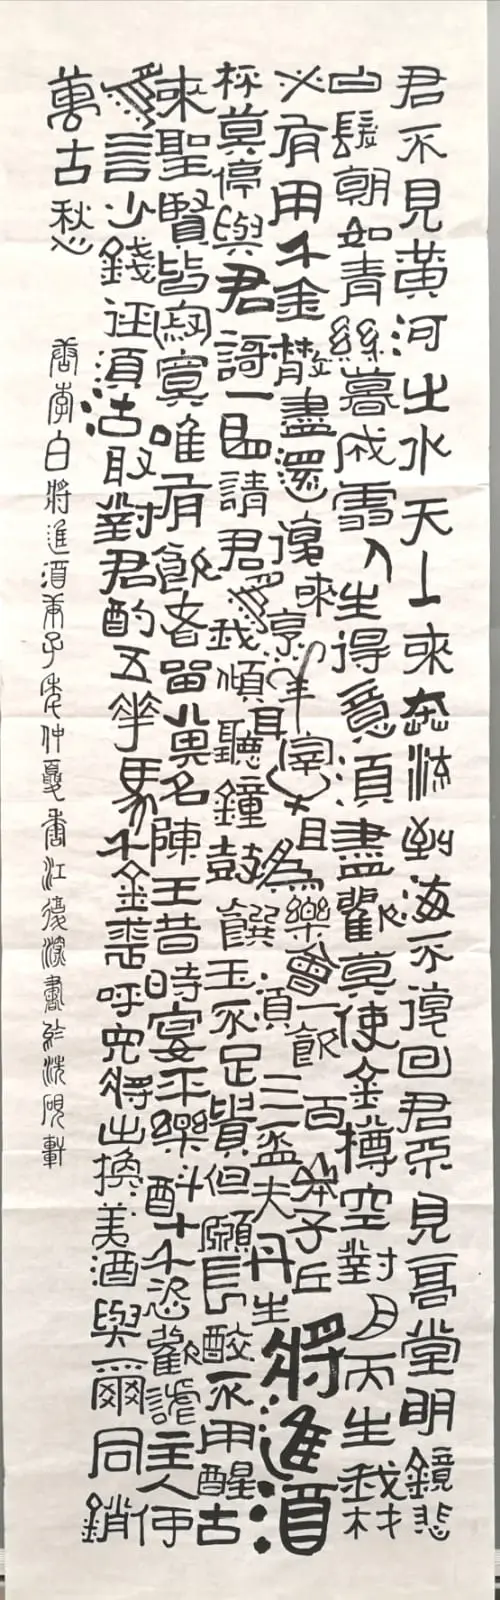 君不見黃河之水天上來奔流到海不復回君不見高堂明鏡悲
白髮朝如青絲暮成雪人生得意須盡歡莫使金樽空對月天生我材
必有用千金散盡還復來烹羊宰牛且為樂會須一飲三百杯岑夫子丹丘生將進酒
杯莫停與君歌一曲請君為我傾耳聽鐘鼓饌玉不足貴但願長醉不用醒古
來聖賢皆寂寞唯有飲者留其名陳王昔時宴平樂斗酒十千恣歡謔主人何
為言少錢徑須沽取對君酌五花馬千金裘呼兒將出換美酒與爾同銷
萬古愁
唐李白將進酒庚子年仲夏江書於洗硯軒